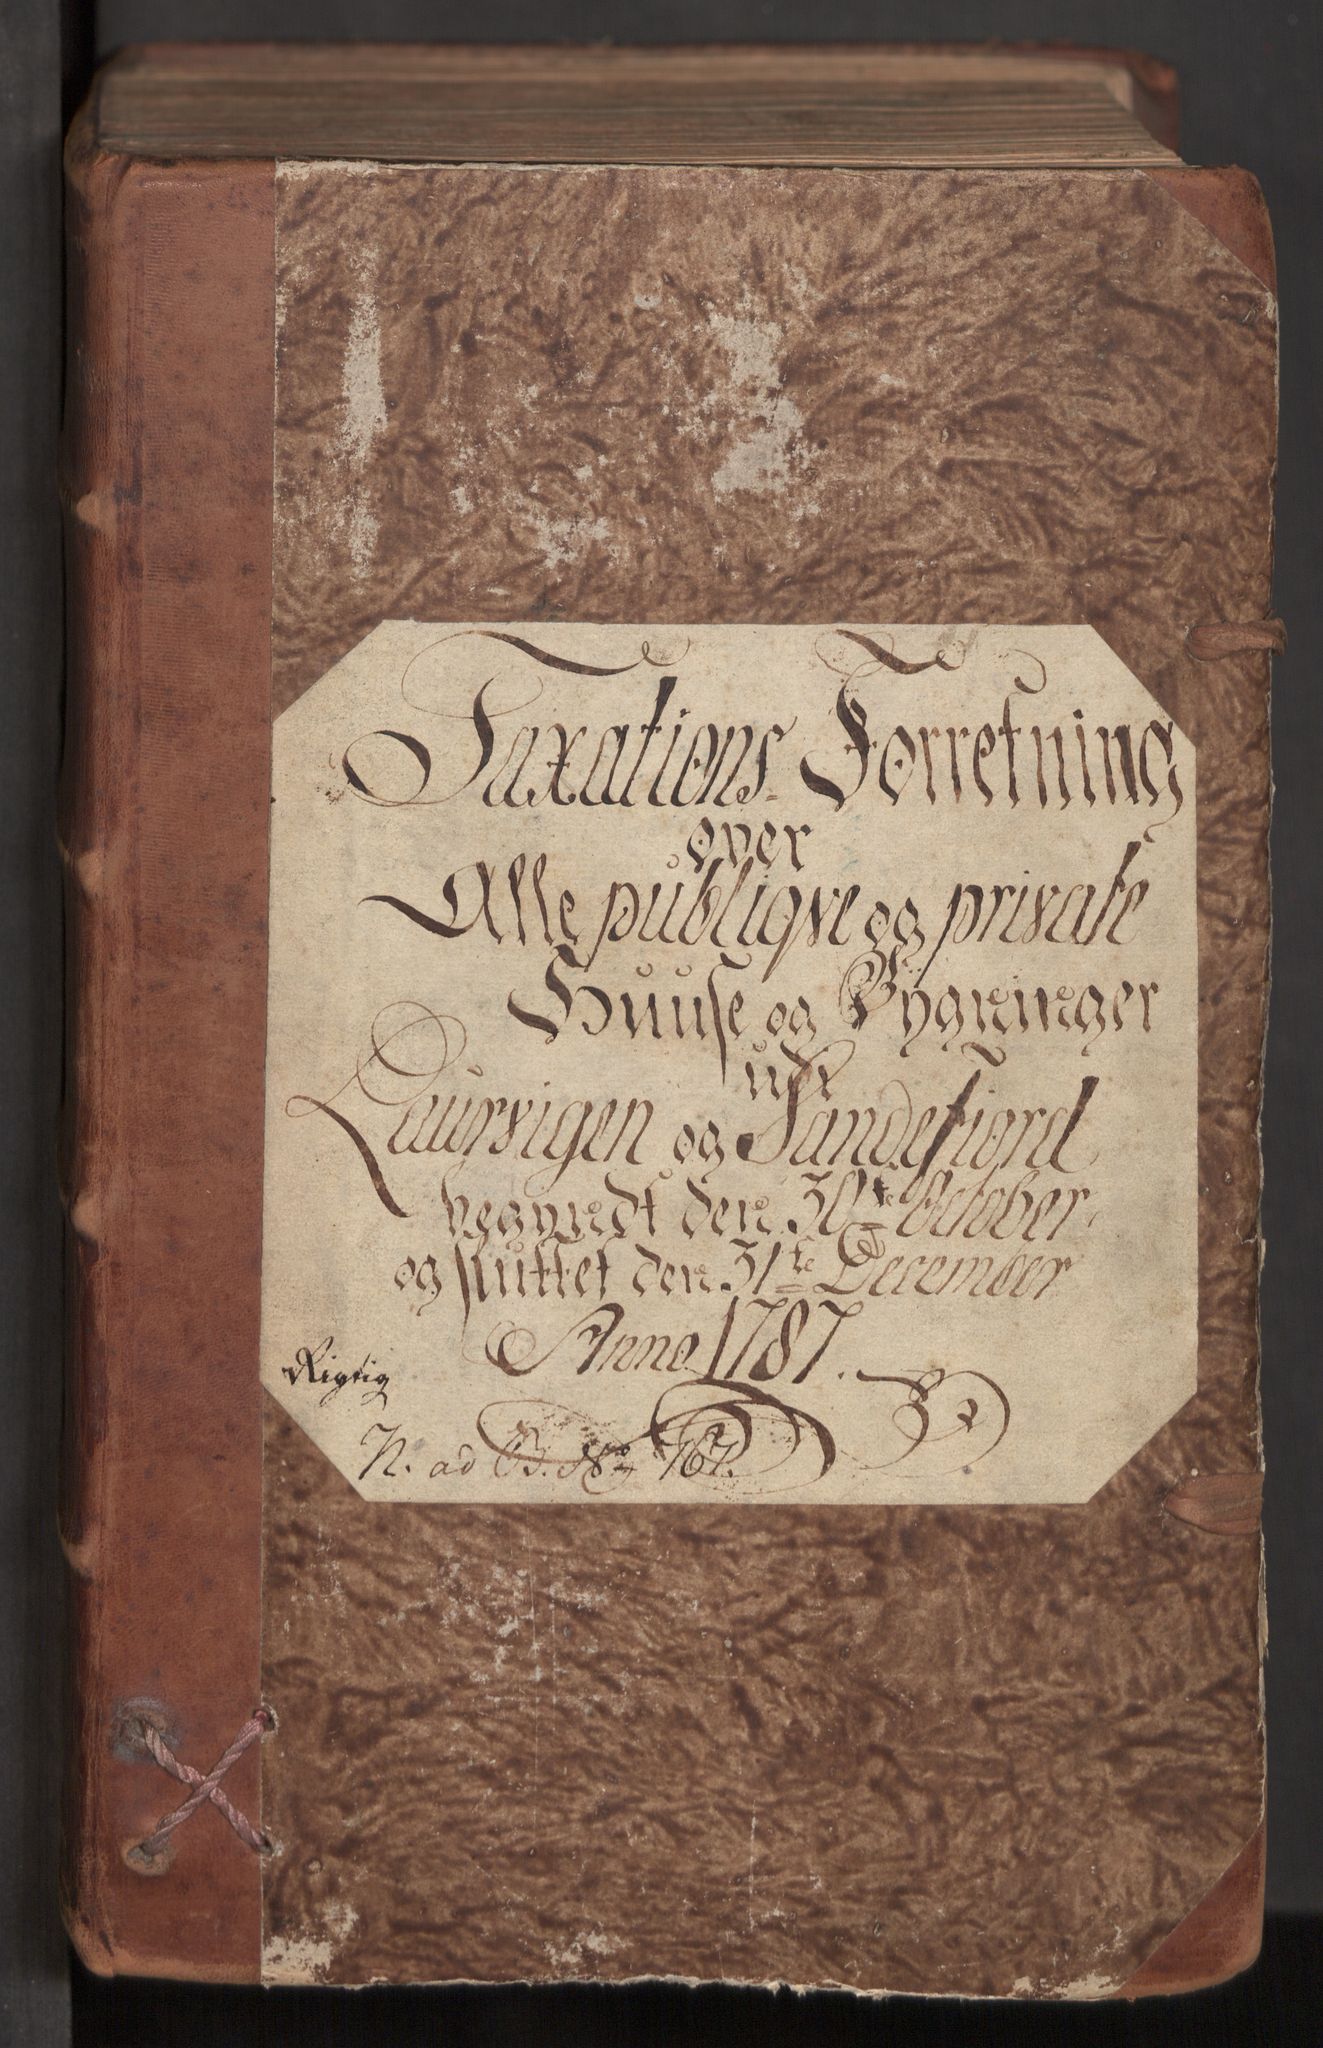 Taxations Forretning
over
Alle publiqve og private
Huuse og Bygninger
udi
Laurvigen og Sandefiord
begyndt den 30te October
og sluttet den 31te December
Anno 1787.
Rigtig
N. ad B. No 767.